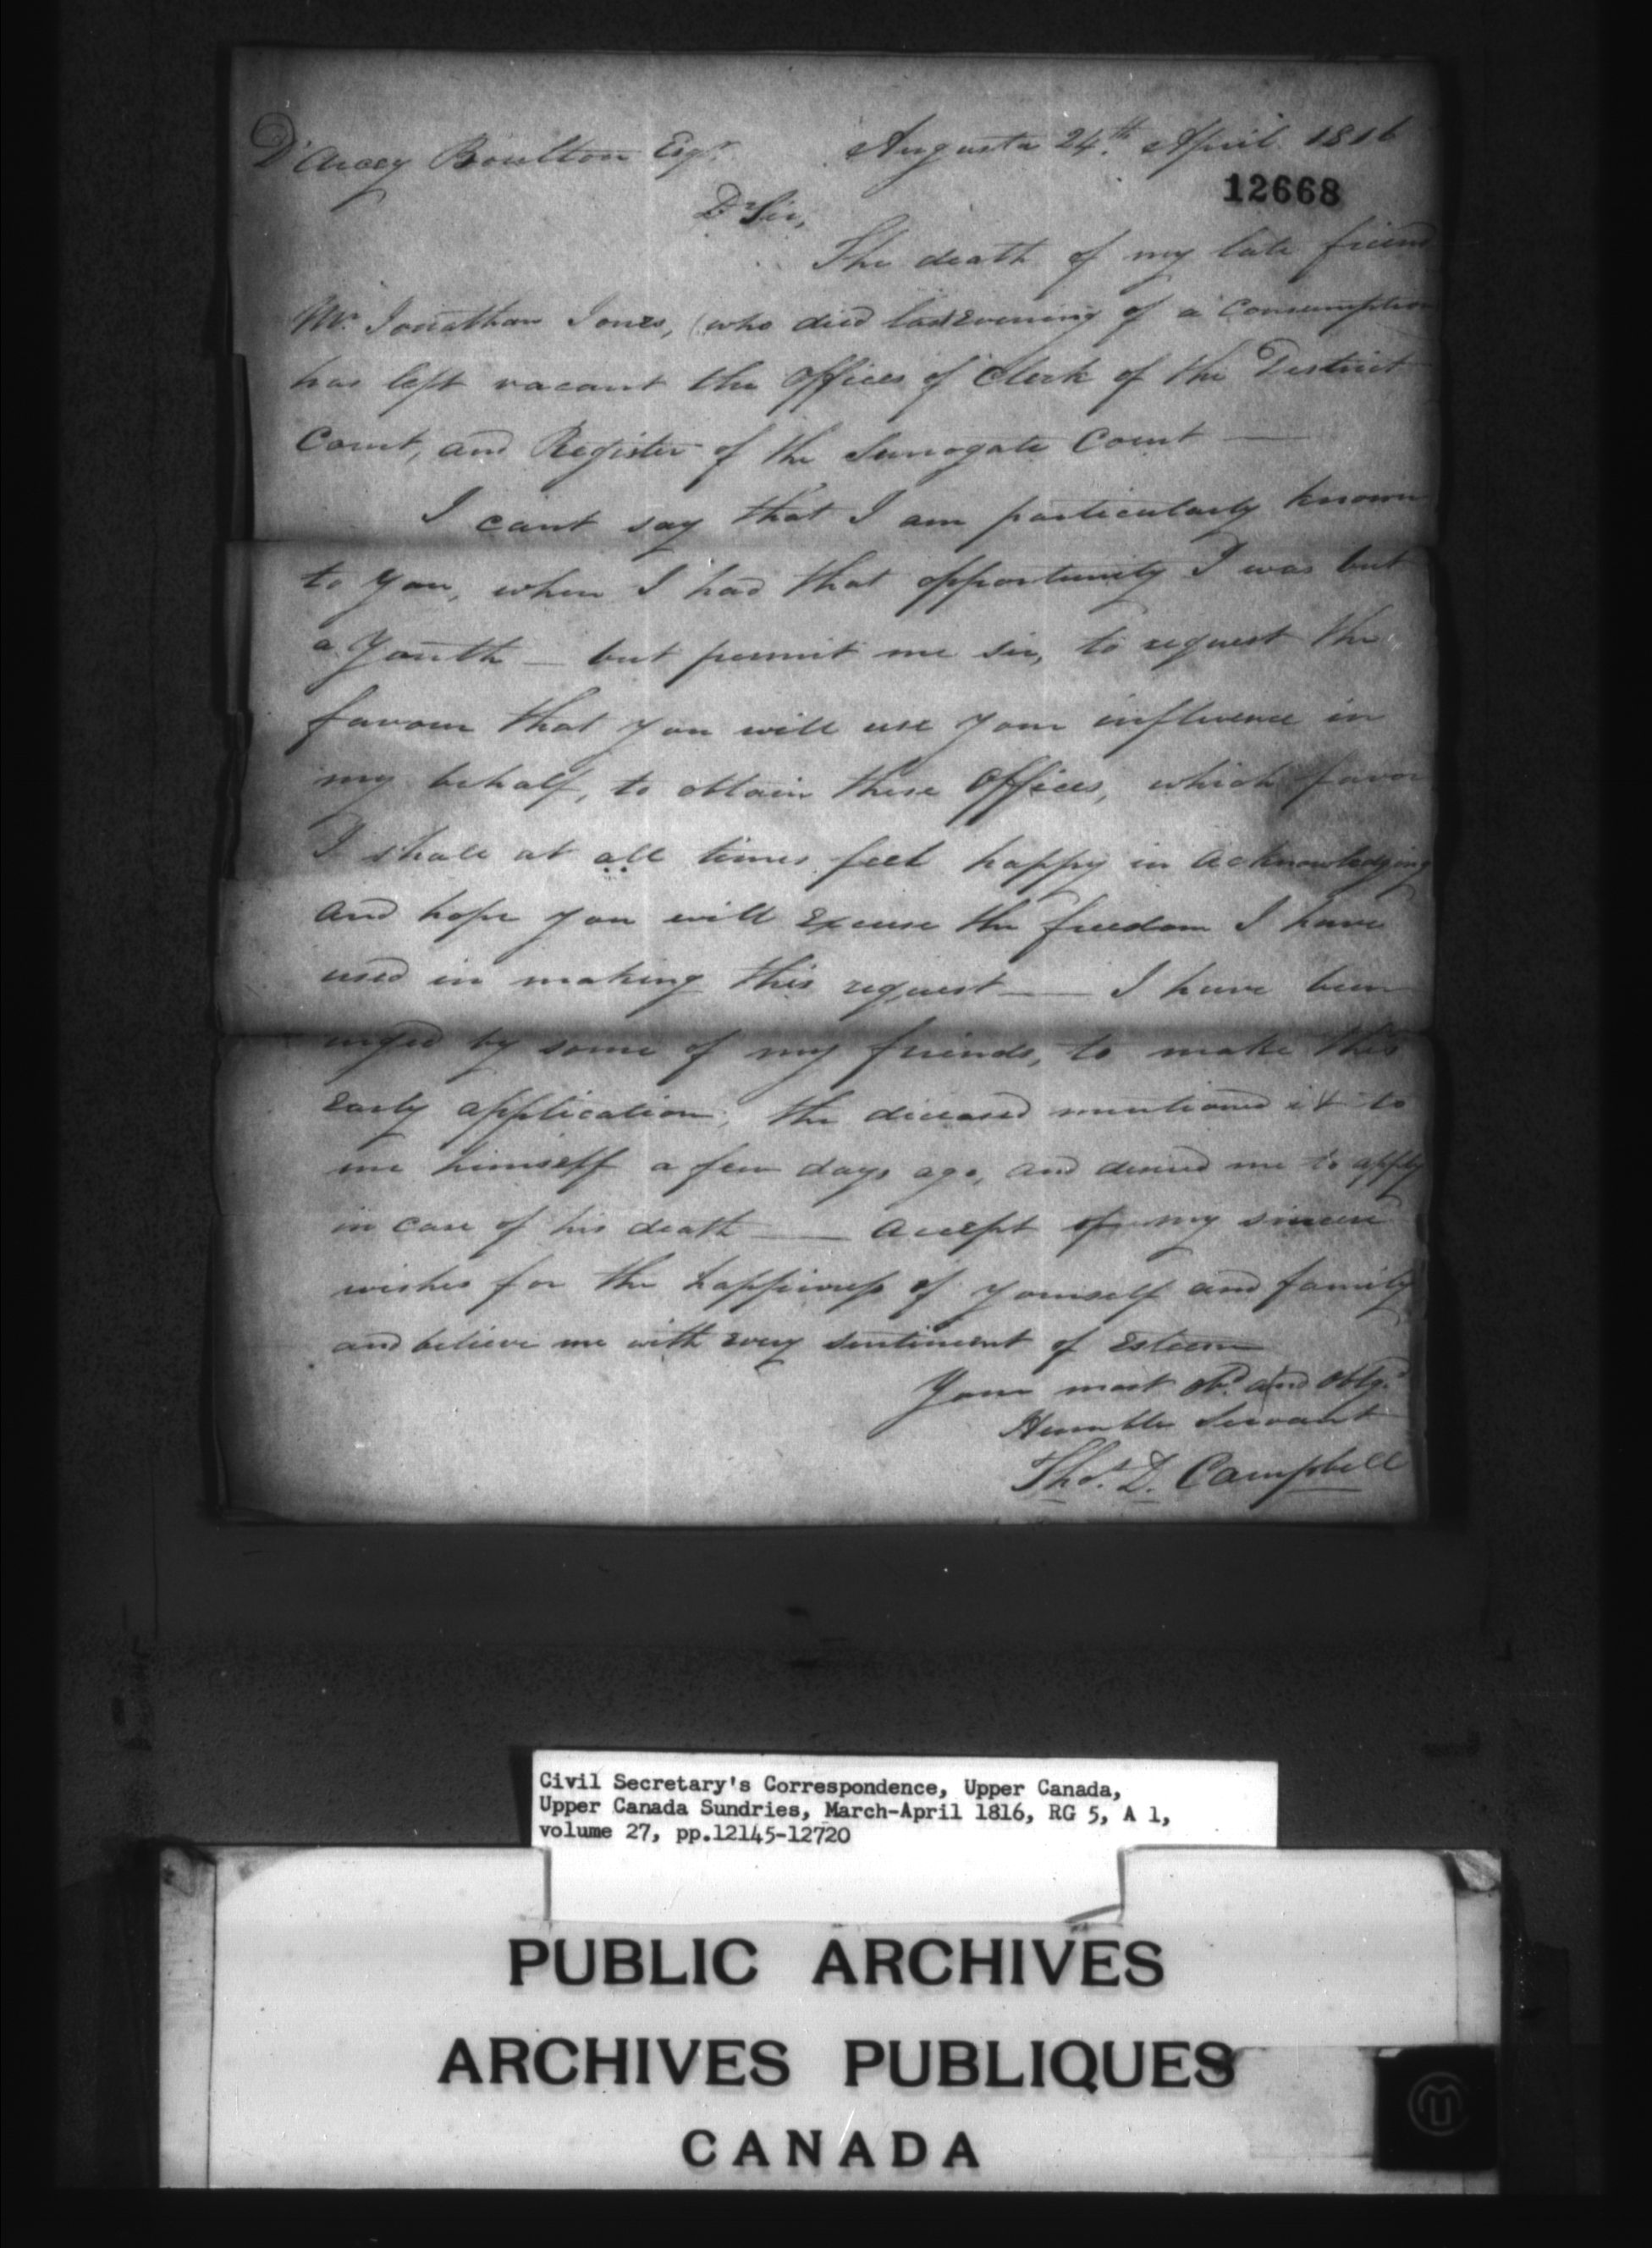 D'Arcey Boulton Esqr. Augusta 24.th April 1816
12668
Dr Sir,
The death of my late friend
Mr. Jonathan Jones, (who died last Evening of a Consumption
has left vacant the Offices of Clerk of the District
Court, and Register of the Surrogate Court —
I cant say that I am particularly known
to you, when I had that opportunity I was but
a Youth — but permit me sir, to request the
favour that you will use your influence in
my behalf, to obtain these Offices, which favor
I shall at all times feel happy in acknowledging
and hope you will Excuse the freedom I have
used in making this request — I have been
urged by some of my friends, to make this
Early application; the deceased mentioned it to
me himself a few days ago, and desired me to apply
in case of his death — accept of my sincere
wishes for the happiness of yourself and family
and believe me with Every sentiment of Esteem
Your most obt. and oblgd.
Humble Servant
Thos. D. Campbell
Civil Secretary's Correspondence, Upper Canada,
Upper Canada Sundries, March-April 1816, RG 5, A 1,
volume 27, pp.12145-12720
PUBLIC ARCHIVES
ARCHIVES PUBLIQUES
CANADA